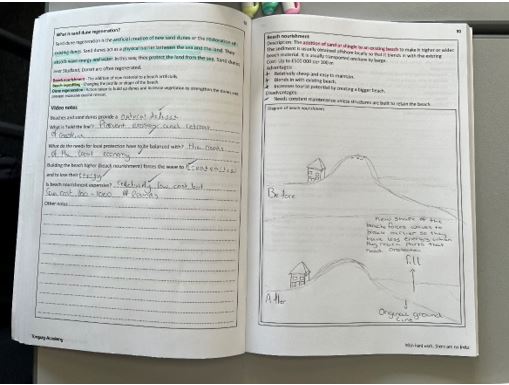 What is sand dune regeneration?
Sand dune regeneration is the artificial creation of new sand dunes or the restoration of
existing dunes. Sand dunes act as a physical barrier between the sea and the land. They
absorb wave energy and water. In this way they protect the land from the sea. Sand dunes
Beach nourishment - The addition of new material to a beach artificially.
Beach reprofiling - Changing the profile or shape of the beach.
Video notes
Beaches and sand dunes provide a natural defence
What is 'hold the line'? Prevent
of coastline
What do the needs for local protection have to be balanced with? The needs
of the local economy
Building the beach higher (beach nourishment) forces the wave to
and to lose their Energy
Is beach nourishment expensive? relatively low cost but
can cost
Other notes
Torquay Academy
93
Beach nourishment
Description: The addition of sand or shingle to an existing beach to make it higher or wider.
The sediment is usually obtained offshore locally so that it blends in with the existing
beach material. It is usually transported onshore by barge.
Cost: Up to £500 000 per 100m
Advantages:
Relatively cheap and easy to maintain.
Blends in with existing beach.
Increases tourist potential by creating a bigger beach.
Disadvantages:
Needs constant maintenance unless structures are built to retain the beach.
Diagram of beach nourishment:
Before
New shape of the
beach forces waves to
break earlier so they
have less energy when
they reach
need protection
fill
After
Original ground
line
With hard work, there are no limits